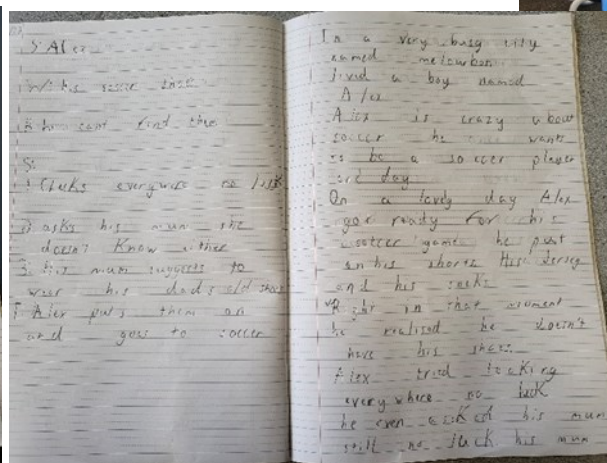 S: Alex
W: his soccer shoes
B: he cant find them
S:
1 Checks everywere no luck
2 asks his mum she
doesn't know either
3. his mum suggests to
wear his dads old shoes
T Alex puts them on
and goes to soccer
In a very busy city
named melowbon
lived a boy named
Alex
Alex is crazy about
soccer he wants
to be a soccer player
one day
On a lovely day Alex
got ready for his
soccer game he put
on his shorts His Jersey
and his socks
Right in that moment
he realised he doesn't
have his shoes
Alex tried looking
everywhere no luck
he even asked his mum
still no luck his mum